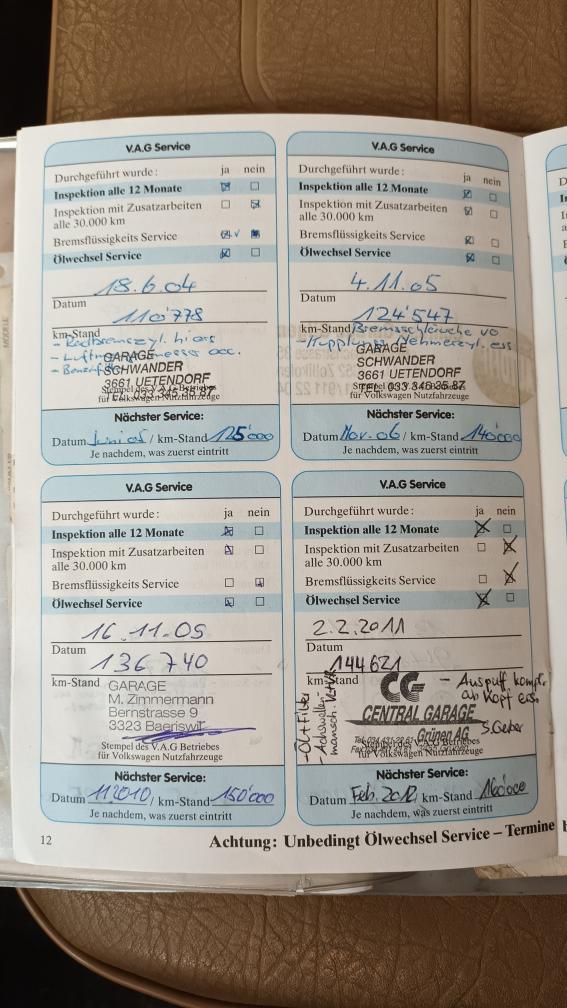 V.A.G Service
Durchgeführt wurde: ja nein
Inspektion alle 12 Monate
Inspektion mit Zusatzarbeiten
alle 30.000 km
Bremsflüssigkeits Service
Ölwechsel Service
18.6.04
Datum
110'778
km-Stand
- Radbremszyl. hi ers
GARAGE
SCHWANDER
3661 UETENDORF
TEL. 033 345 35 87
Stempel des V.A.G Betriebes
für Volkswagen Nutzfahrzeuge
Nächster Service:
Datum Juni 05 / km-Stand 125'000
Je nachdem, was zuerst eintritt
V.A.G Service
Durchgeführt wurde: ja nein
Inspektion alle 12 Monate
Inspektion mit Zusatzarbeiten
alle 30.000 km
Bremsflüssigkeits Service
Ölwechsel Service
4.11.05
Datum
124'547
km-Stand Bremsschläuche vo
- Kupplungs Nehmerzyl. ers
GARAGE
SCHWANDER
3661 UETENDORF
TEL. 033 345 35 87
Stempel des V.A.G Betriebes
für Volkswagen Nutzfahrzeuge
Nächster Service:
Datum Nov. 06 / km-Stand 140'000
Je nachdem, was zuerst eintritt
V.A.G Service
Durchgeführt wurde: ja nein
Inspektion alle 12 Monate
Inspektion mit Zusatzarbeiten
alle 30.000 km
Bremsflüssigkeits Service
Ölwechsel Service
16.11.09
Datum
136'740
km-Stand
GARAGE
M. Zimmermann
Bernstrasse 9
3323 Baeriswil
Stempel des V.A.G Betriebes
für Volkswagen Nutzfahrzeuge
Nächster Service:
Datum 11 2010 / km-Stand 150'000
Je nachdem, was zuerst eintritt
V.A.G Service
Durchgeführt wurde: ja nein
Inspektion alle 12 Monate
Inspektion mit Zusatzarbeiten
alle 30.000 km
Bremsflüssigkeits Service
Ölwechsel Service
2.2.2011
Datum
144'621
km-Stand
- Öl + Filter
- Achswellen-
mansch.
CG
- Auspuff kompl.
ab Kopf ers.
CENTRAL GARAGE
Grünen AG
S. Geber
Stempel des V.A.G Betriebes
für Volkswagen Nutzfahrzeuge
Nächster Service:
Datum Feb. 2012 / km-Stand 160'000
Je nachdem, was zuerst eintritt
12
Achtung: Unbedingt Ölwechsel Service – Termine